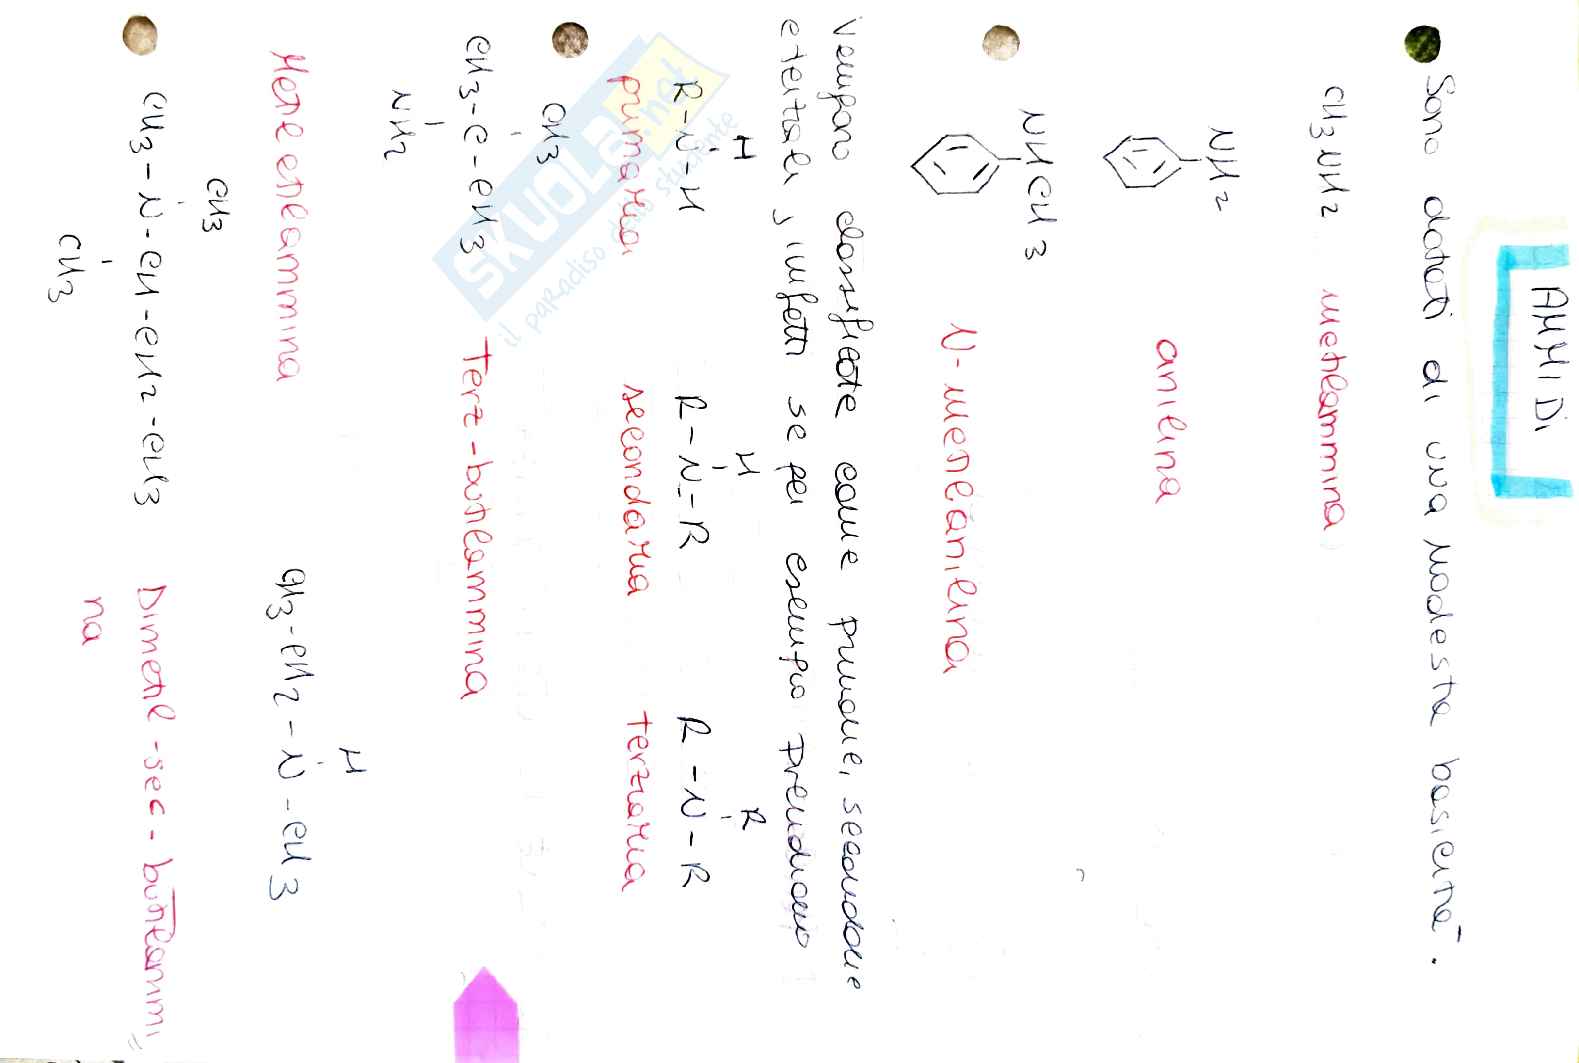 AMMIDI
Sono dotati di una modesta basicità.
CH3NH2 metilammina
NH2
anilina
NHCH3
N-metilanilina
Vengono classificate come primarie, secondarie
e terziarie, infatti se per esempio prendiamo
H H R
R-N-H R-N-R R-N-R
primaria secondaria terziaria
CH3
CH3-C-CH3 Terz-butilammina
NH2
H
Metiletilammina CH3-CH2-N-CH3
CH3
CH3-N-CH-CH2-CH3 Dimetil-sec-butilammi
CH3 na
SKUOLA.net
il paradiso dello studente